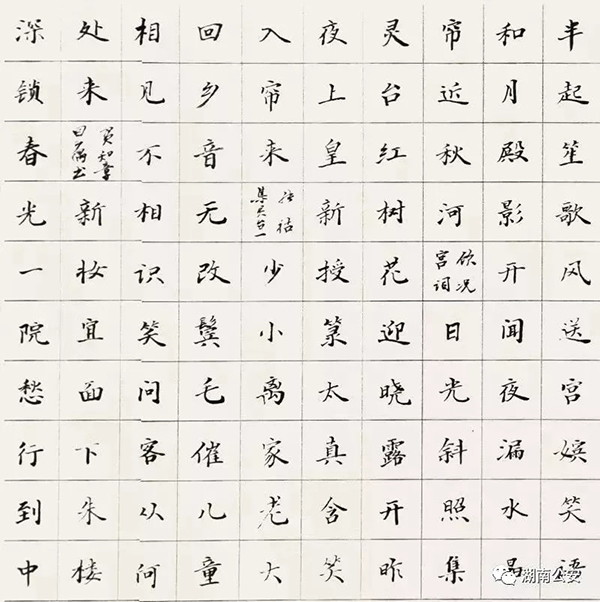 半起笙歌风送宫娱笑语
和月殿影开闻夜漏水晶
帘近秋河
顾况
宫词
日光斜照集
灵台红树花迎晓露开昨
夜上皇新授箓太真含笑
入帘来
张祜
集灵台一
少小离家老大
回乡音无改鬓毛催儿童
相见不相识笑问客从何
处来
贺知章
回偶书
新妆宜面下朱楼
深锁春光一院愁行到中
湖南公安